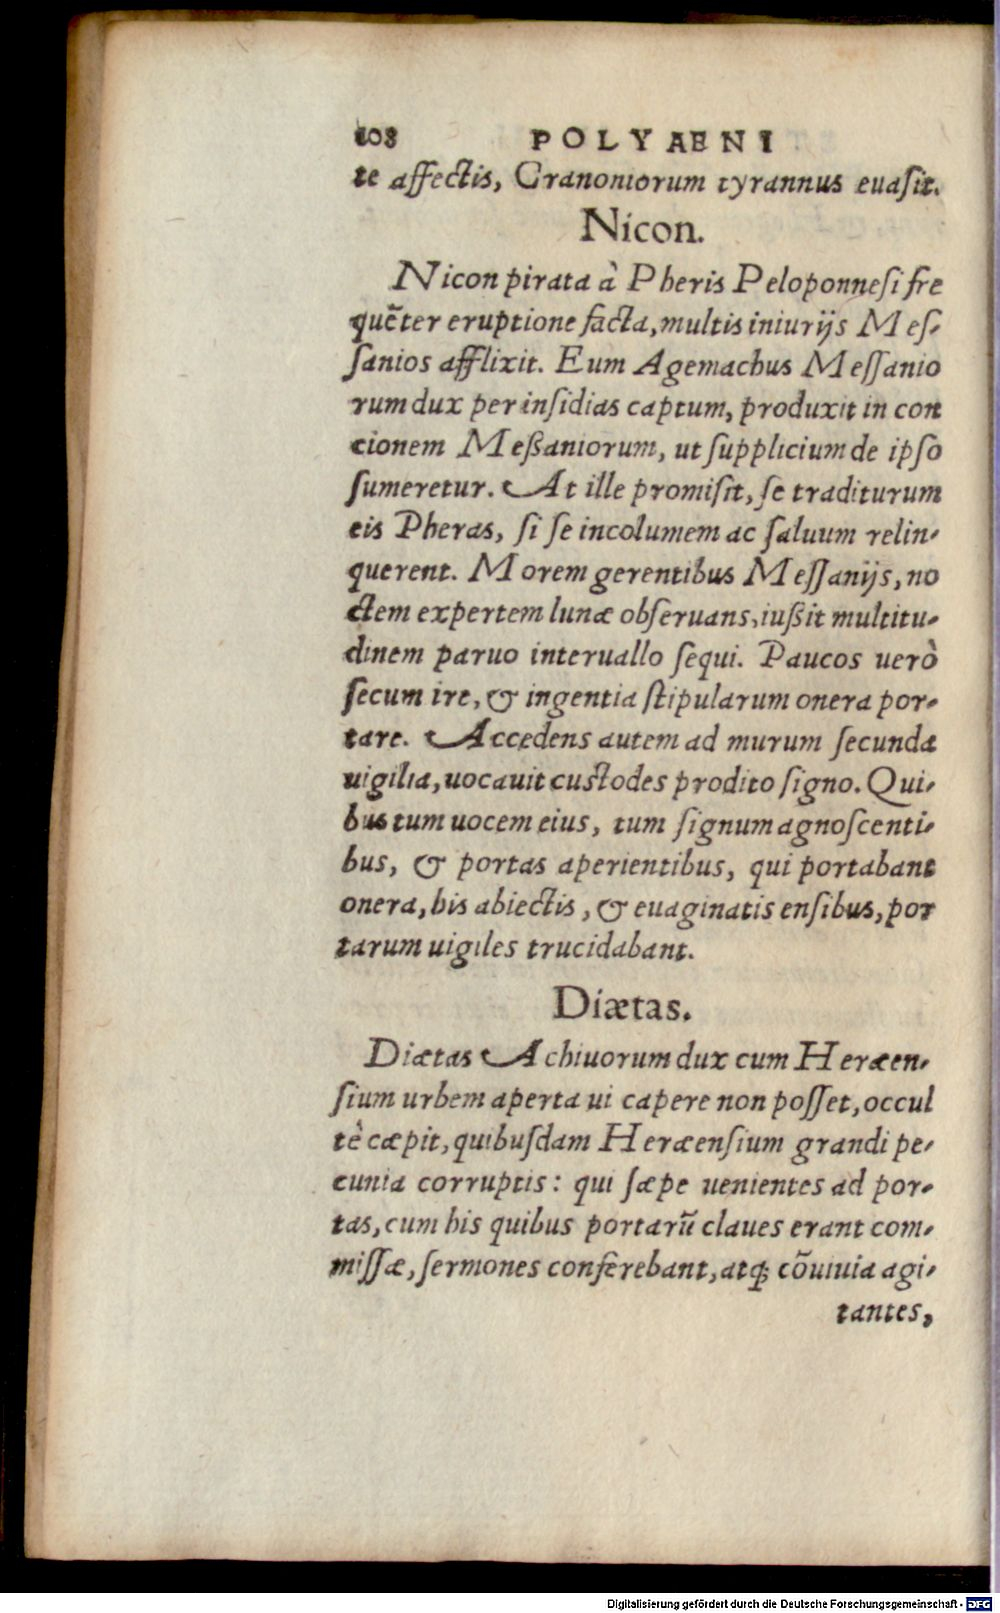 108 POLYAENI
te affectis, Cranoniorum tyrannus euaſit.
Nicon.
Nicon pirata à Pheris Peloponneſi fre
quẽter eruptione facta, multis iniurijs Meſ-
ſanios afflixit. Eum Agemachus Meſſanio
rum dux per inſidias captum, produxit in con
cionem Meßaniorum, ut ſupplicium de ipſo
ſumeretur. At ille promiſit, ſe traditurum
eis Pheras, ſi ſe incolumem ac ſaluum relin-
querent. Morem gerentibus Meſſanijs, no
ctem expertem lunæ obſeruans, iußit multitu-
dinem paruo interuallo ſequi. Paucos uerò
ſecum ire, & ingentia ſtipularum onera por-
tare. Accedens autem ad murum ſecunda
uigilia, uocauit cuſtodes prodito ſigno. Qui-
bus tum uocem eius, tum ſignum agnoſcenti-
bus, & portas aperientibus, qui portabant
onera, his abiectis, & euaginatis enſibus, por
tarum uigiles trucidabant.
Diætas.
Diætas Achiuorum dux cum Heræen-
ſium urbem aperta ui capere non poſſet, occul
tè cæpit, quibuſdam Heræenſium grandi pe-
cunia corruptis: qui ſæpe uenientes ad por-
tas, cum his quibus portarũ claues erant com-
miſſæ, ſermones conferebant, atq; cõuiuia agi-
tantes,
Digitalisierung gefördert durch die Deutsche Forschungsgemeinschaft - DFG